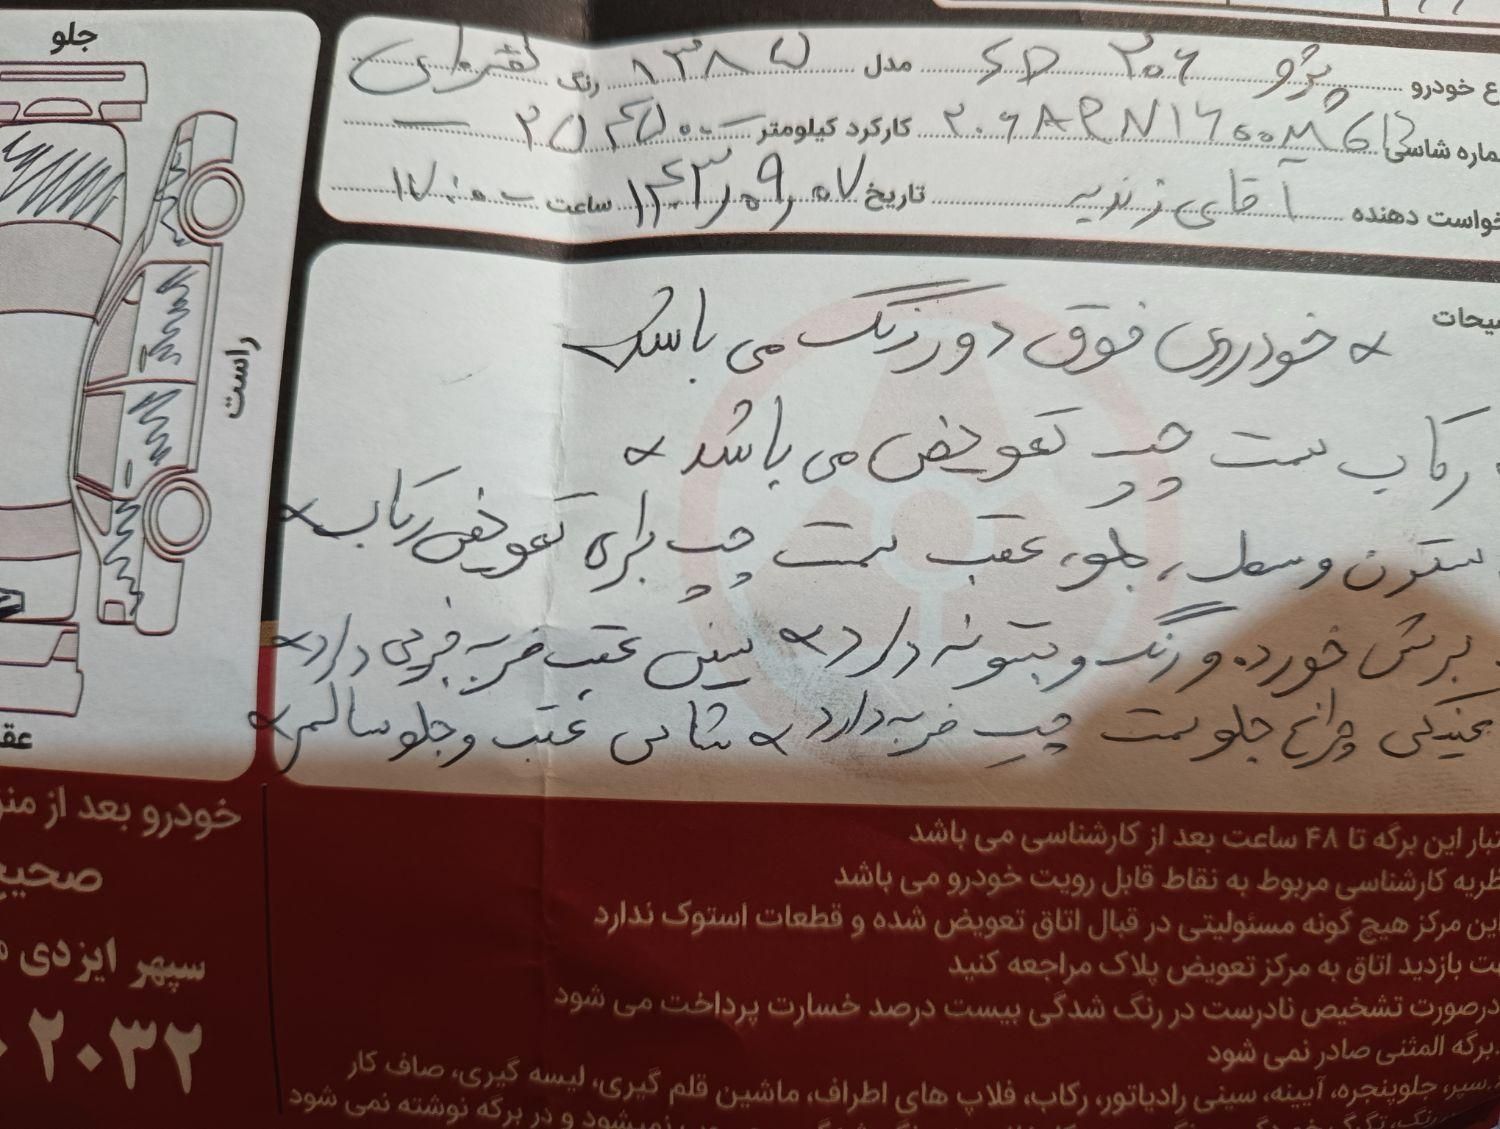 جلو
ع خودرو پژو ۲۰۶ SD مدل ۱۳۸۵ رنگ نقره‌ای
ماره شاسی کارکرد کیلومتر
خواست دهنده آقای زندیه تاریخ ۱۴۰۳/۰۹/۰۷ ساعت ۱۷:۰۰
راست
یحات
* خودروی فوق دور رنگ می باشد
رکاب سمت چپ تعویض می باشد *
ستون وسط، جلو، عقب سمت چپ برای تعویض رکاب *
برش خورده و رنگ و بتونه دارد * سینی عقب ضربه فربی دارد *
عینکی چراغ جلو سمت چپ ضربه دارد * شاسی عقب و جلو سالم *
عق
خودرو بعد از من
صحیح
سپهر ایزدی
۲۰۳۲
تبار این برگه تا ۴۸ ساعت بعد از کارشناسی می باشد
ظریه کارشناسی مربوط به نقاط قابل رویت خودرو می باشد
این مرکز هیچ گونه مسئولیتی در قبال اتاق تعویض شده و قطعات استوک ندارد
ت بازدید اتاق به مرکز تعویض پلاک مراجعه کنید
درصورت تشخیص نادرست در رنگ شدگی بیست درصد خسارت پرداخت می شود
برگه المثنی صادر نمی شود
سپر، جلوپنجره، آیینه، سینی رادیاتور، رکاب، فلاپ های اطراف، ماشین قلم گیری، لیسه گیری، صاف کار
نمیشود و در برگه نوشته نمی شود